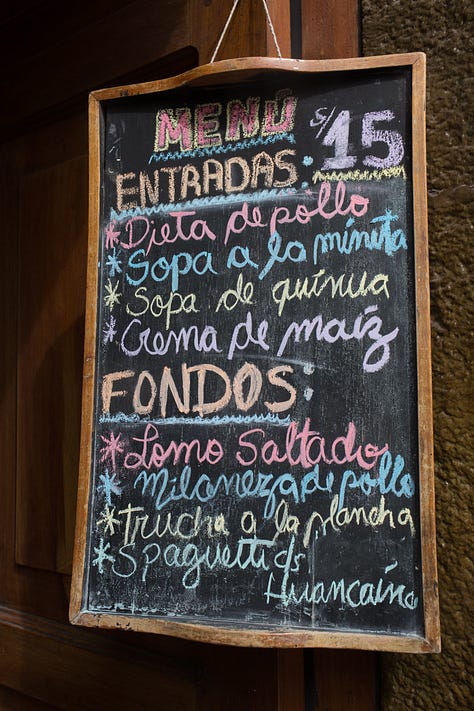 MENÚ S/ 15
ENTRADAS:
* Dieta de pollo
* Sopa a la minuta
* Sopa de quinua
* Crema de maíz
FONDOS:
* Lomo Saltado
* Milaneza de pollo
* Trucha a la plancha
* Spaguetti ds
Huancaína